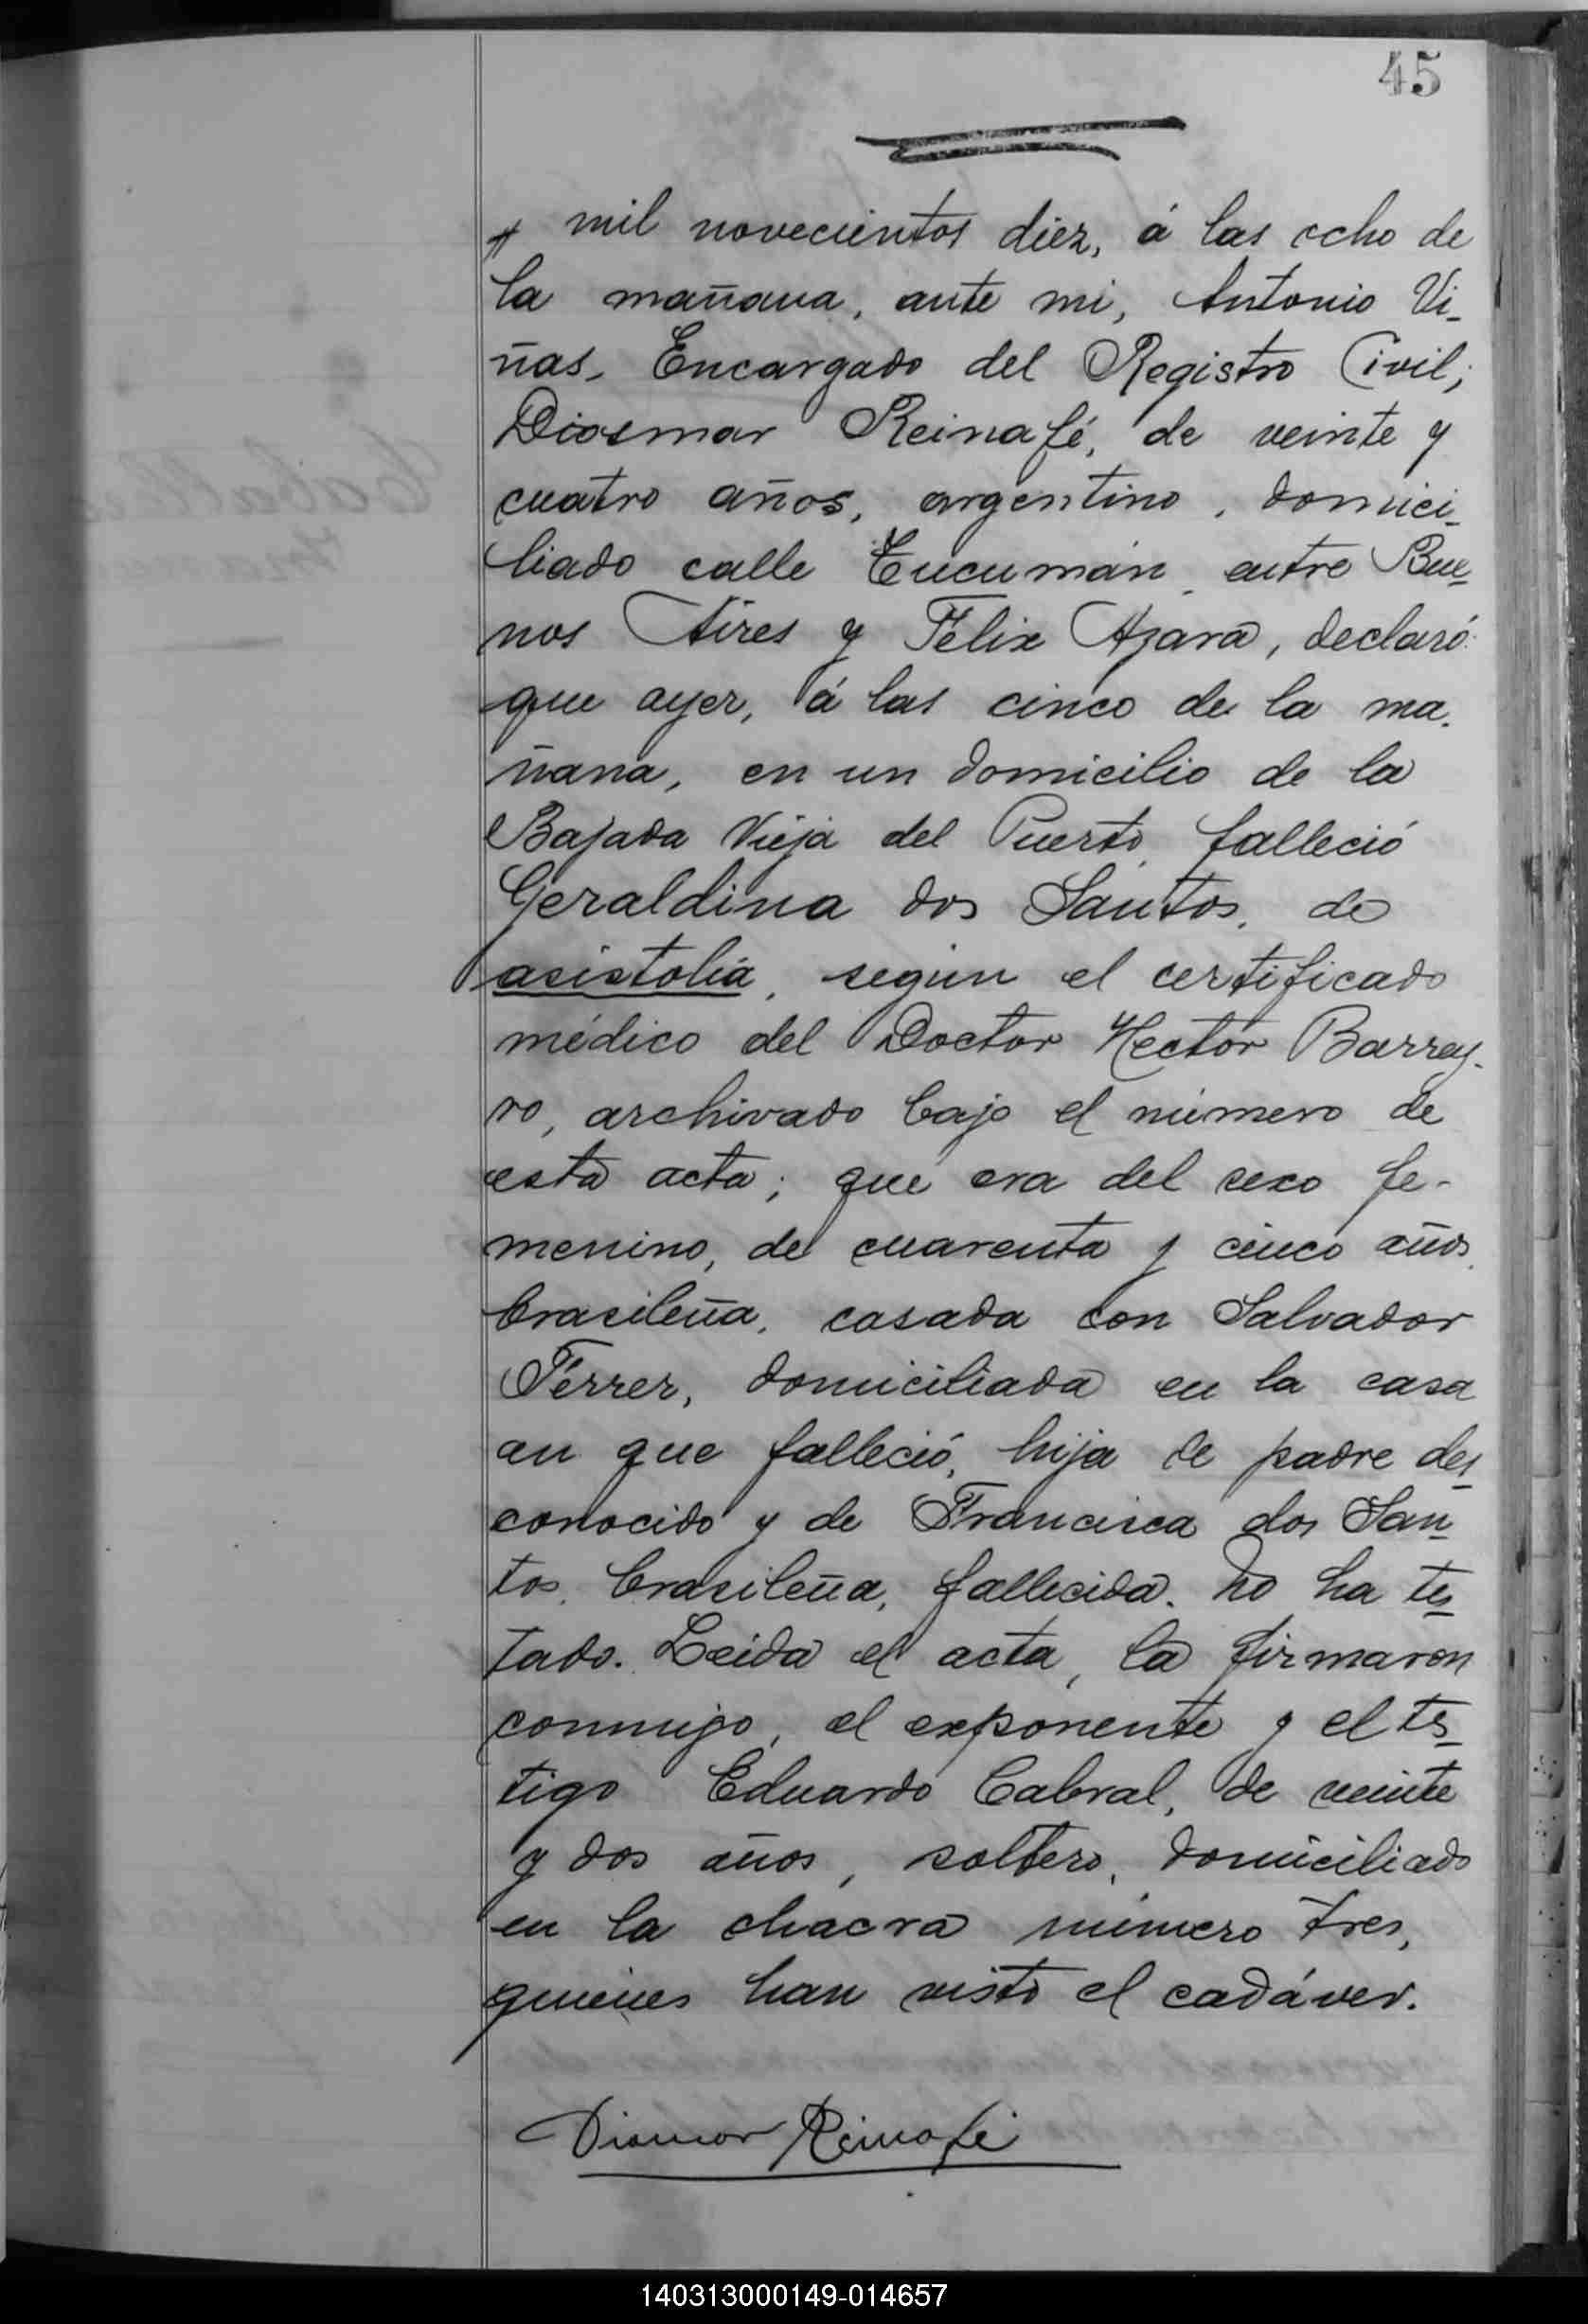 45
mil novecientos diez, á las ocho de
la mañana, ante mi, Antonio Vi-
ñas, Encargado del Registro Civil;
Diosmar Reinafé, de veinte y
cuatro años, argentino, domici-
liado calle Tucumán, entre Bue-
nos Aires y Félix Azara, declaró:
que ayer, á las cinco de la ma-
ñana, en un domicilio de la
Bajada Vieja del Puerto, falleció
Geraldina dos Santos, de
asistolia, según el certificado
médico del Doctor Hector Barrey-
ro, archivado bajo el número de
esta acta; que era del sexo fe-
menino, de cuarenta y cinco años,
brasileña, casada con Salvador
Ferrer, domiciliada en la casa
en que falleció, hija de padre des-
conocido y de Francisca dos San-
tos, brasileña, fallecida. No ha tes-
tado. Leida el acta, la firmaron
conmigo, el exponente y el tes-
tigo Eduardo Cabral, de veinte
y dos años, soltero, domiciliado
en la chacra número tres,
quienes han visto el cadáver.
Diosmar Reinafé
140313000149-014657